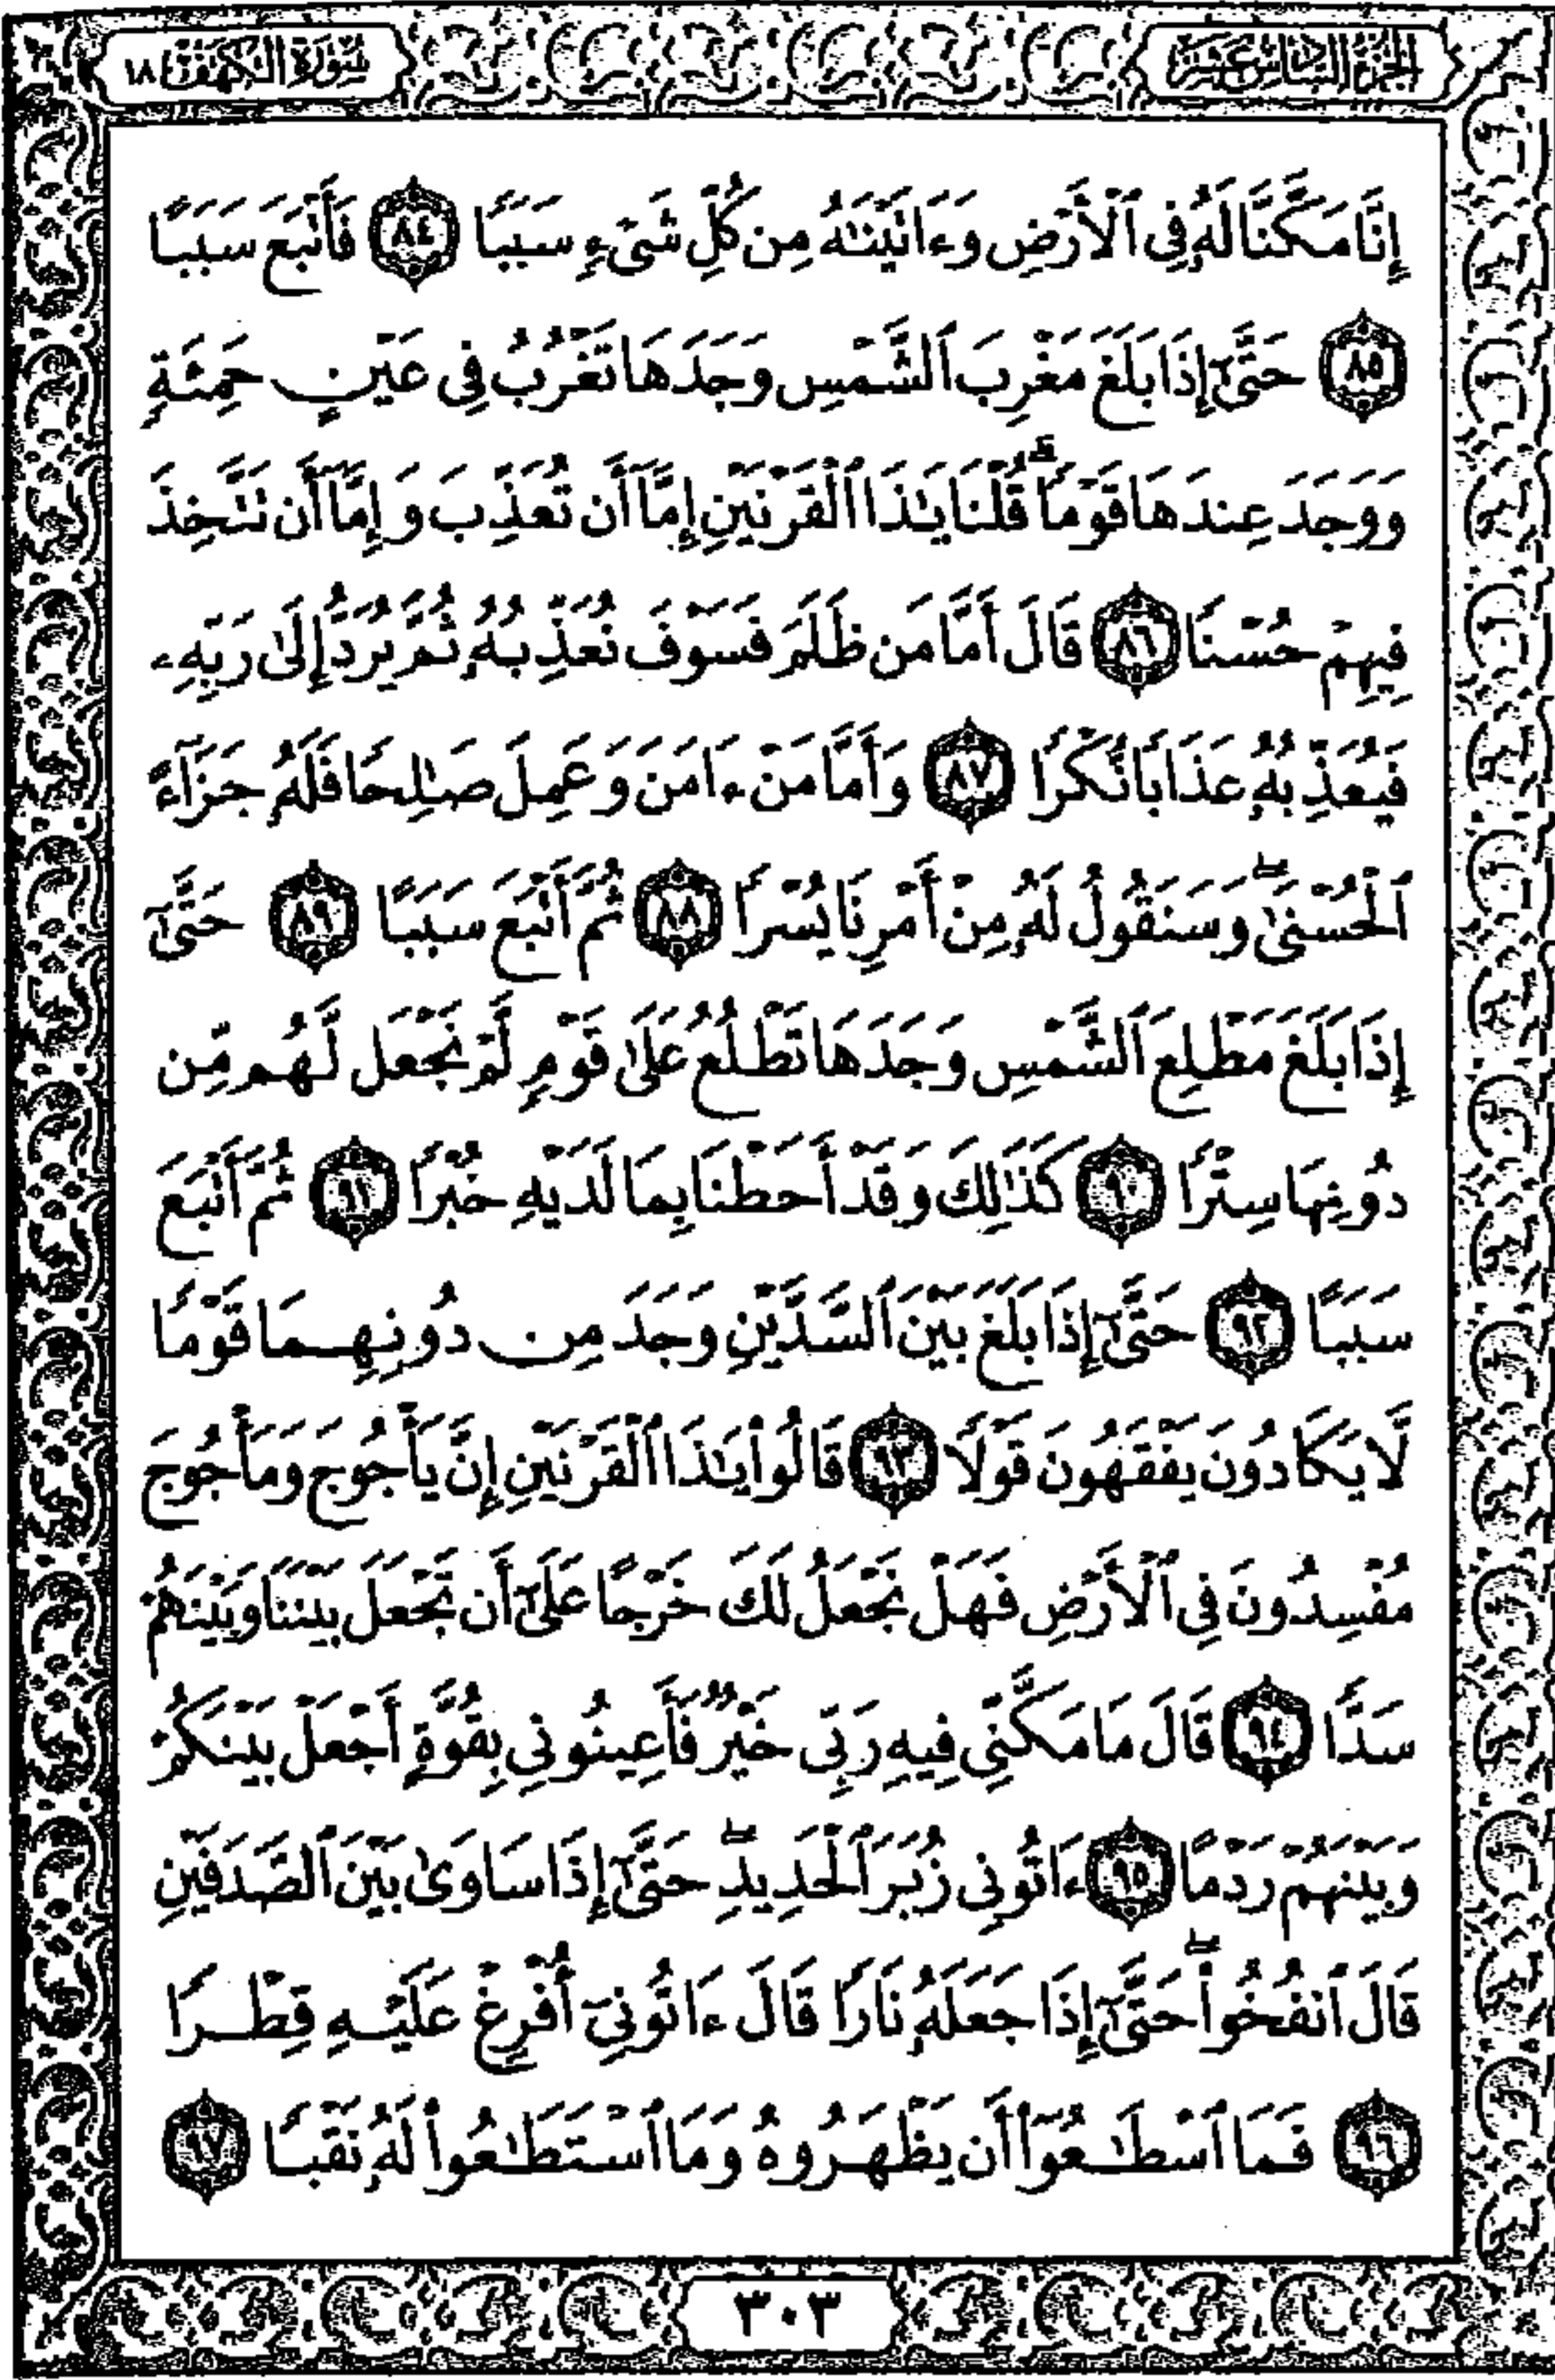 الجزء السادس عشر
سورة الكهف ١٨
إِنَّا مَكَّنَّا لَهُۥ فِى ٱلْأَرْضِ وَءَاتَيْنَـٰهُ مِن كُلِّ شَىْءٍ سَبَبًا ﴿٨٤﴾ فَأَتْبَعَ سَبَبًا
﴿٨٥﴾ حَتَّىٰٓ إِذَا بَلَغَ مَغْرِبَ ٱلشَّمْسِ وَجَدَهَا تَغْرُبُ فِى عَيْنٍ حَمِئَةٍ
وَوَجَدَ عِندَهَا قَوْمًا ۗ قُلْنَا يَـٰذَا ٱلْقَرْنَيْنِ إِمَّآ أَن تُعَذِّبَ وَإِمَّآ أَن تَتَّخِذَ
فِيهِمْ حُسْنًا ﴿٨٦﴾ قَالَ أَمَّا مَن ظَلَمَ فَسَوْفَ نُعَذِّبُهُۥ ثُمَّ يُرَدُّ إِلَىٰ رَبِّهِۦ
فَيُعَذِّبُهُۥ عَذَابًا نُّكْرًا ﴿٨٧﴾ وَأَمَّا مَنْ ءَامَنَ وَعَمِلَ صَـٰلِحًا فَلَهُۥ جَزَآءً
ٱلْحُسْنَىٰ ۖ وَسَنَقُولُ لَهُۥ مِنْ أَمْرِنَا يُسْرًا ﴿٨٨﴾ ثُمَّ أَتْبَعَ سَبَبًا ﴿٨٩﴾ حَتَّىٰٓ
إِذَا بَلَغَ مَطْلِعَ ٱلشَّمْسِ وَجَدَهَا تَطْلُعُ عَلَىٰ قَوْمٍ لَّمْ نَجْعَل لَّهُم مِّن
دُونِهَا سِتْرًا ﴿٩٠﴾ كَذَٰلِكَ وَقَدْ أَحَطْنَا بِمَا لَدَيْهِ خُبْرًا ﴿٩١﴾ ثُمَّ أَتْبَعَ
سَبَبًا ﴿٩٢﴾ حَتَّىٰٓ إِذَا بَلَغَ بَيْنَ ٱلسَّدَّيْنِ وَجَدَ مِن دُونِهِمَا قَوْمًا
لَّا يَكَادُونَ يَفْقَهُونَ قَوْلًا ﴿٩٣﴾ قَالُوا۟ يَـٰذَا ٱلْقَرْنَيْنِ إِنَّ يَأْجُوجَ وَمَأْجُوجَ
مُفْسِدُونَ فِى ٱلْأَرْضِ فَهَلْ نَجْعَلُ لَكَ خَرْجًا عَلَىٰٓ أَن تَجْعَلَ بَيْنَنَا وَبَيْنَهُمْ
سَدًّا ﴿٩٤﴾ قَالَ مَا مَكَّنِّى فِيهِ رَبِّى خَيْرٌ فَأَعِينُونِى بِقُوَّةٍ أَجْعَلْ بَيْنَكُمْ
وَبَيْنَهُمْ رَدْمًا ﴿٩٥﴾ ءَاتُونِى زُبَرَ ٱلْحَدِيدِ ۖ حَتَّىٰٓ إِذَا سَاوَىٰ بَيْنَ ٱلصَّدَفَيْنِ
قَالَ ٱنفُخُوا۟ ۖ حَتَّىٰٓ إِذَا جَعَلَهُۥ نَارًا قَالَ ءَاتُونِىٓ أُفْرِغْ عَلَيْهِ قِطْرًا
﴿٩٦﴾ فَمَا ٱسْطَـٰعُوٓا۟ أَن يَظْهَرُوهُ وَمَا ٱسْتَطَـٰعُوا۟ لَهُۥ نَقْبًا ﴿٩٧﴾
٣٠٣